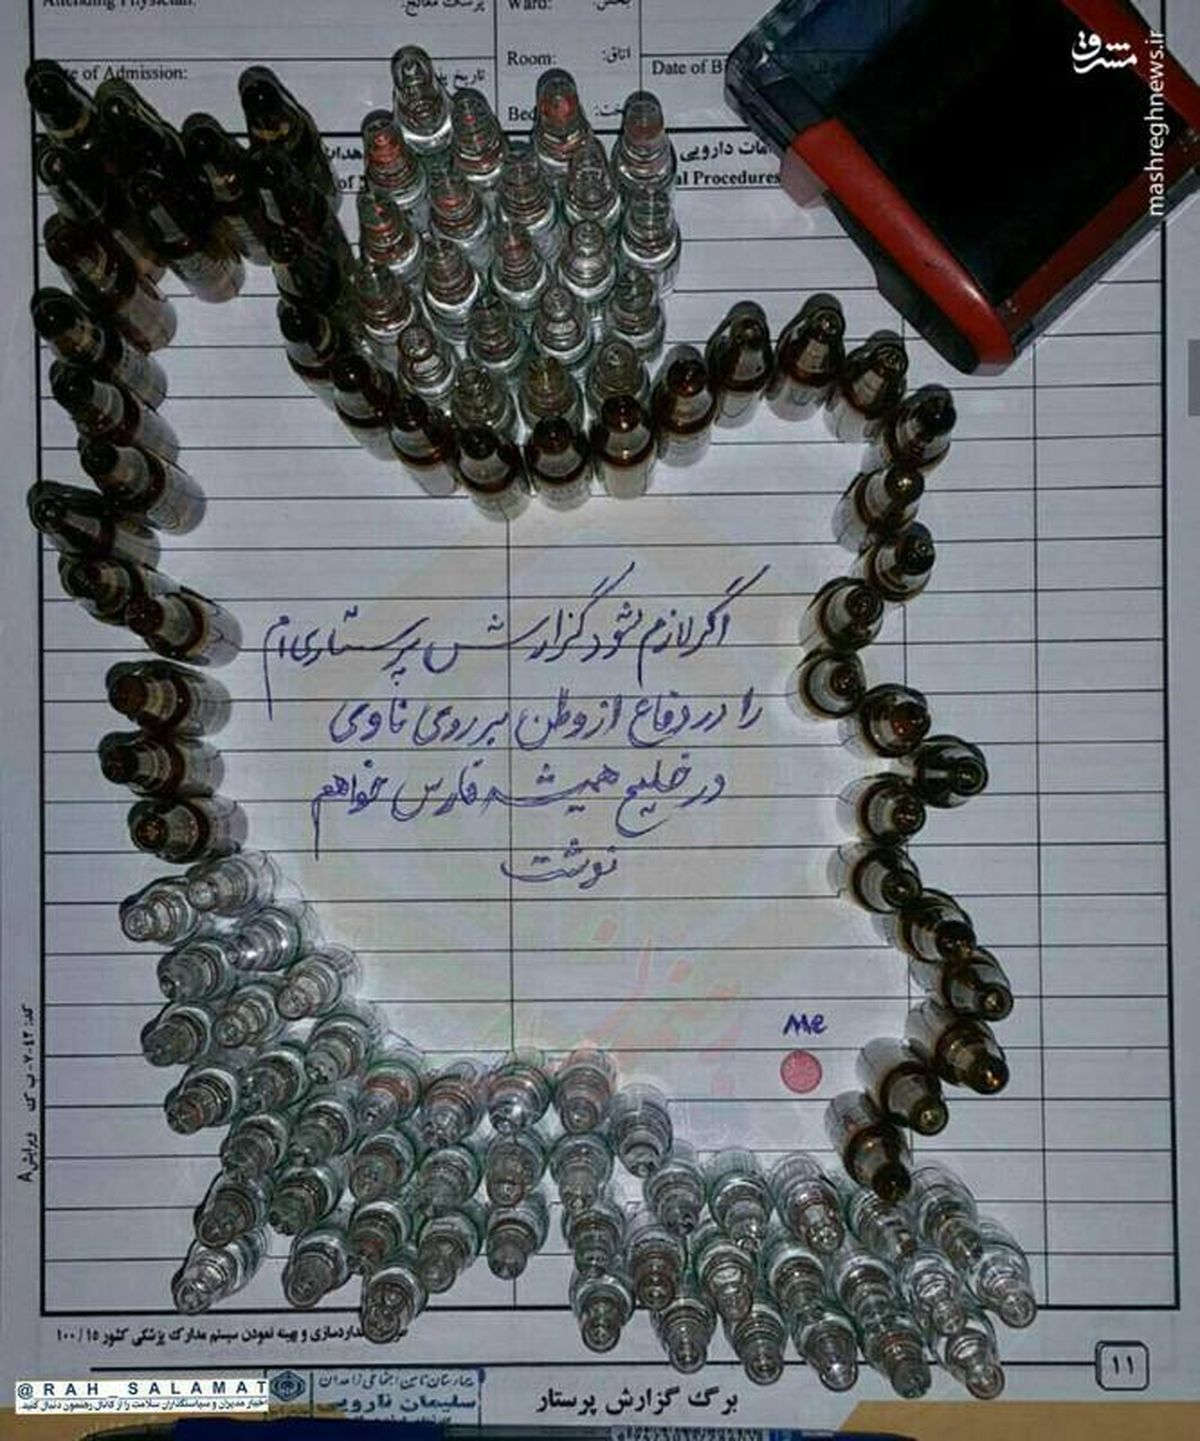 Attending Physician:
پزشک معالج:
Ward:
بخش:
Room:
اتاق:
of Admission:
تاریخ
Date of
Bed
خت:
دارویی
al Procedures
مشرق
mashreghnews.ir
اگر لازم شود گزارش پرستاری ام
را در دفاع از وطن بر روی ناوی
در خلیج همیشه فارس خواهم
نوشت
Me
ویرایش A
دسازی و بهینه نمودن سیستم مدارک پزشکی کشور ۱۵ / ۱۰۰
۱۱
برگ گزارش پرستار
@RAH_SALAMAT
اخبار مدیران و سیاستگذاران سلامت را از کانال رهنمون دنبال کنید
بیمارستان تامین اجتماعی زاهدان
سلیمان نارویی